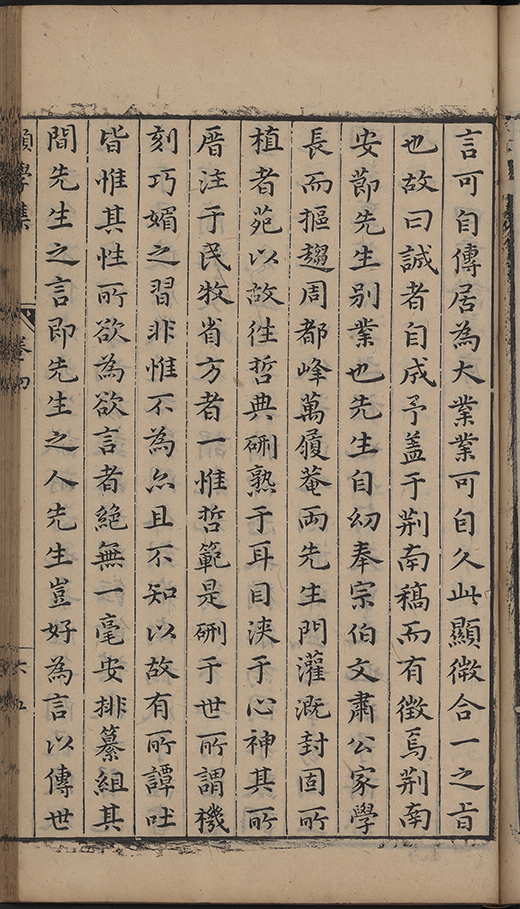 言可自傳居為大業業可自久此顯微合一之旨
也故曰誠者自成予蓋于荆南稿而有徵焉荆南
安節先生别業也先生自幼奉宗伯文肅公家學
長而摳趨周都峰萬履菴両先生門灌溉封固所
植者苑以故徃哲典硎熟于耳目浹于心神其所
厝注于民牧省方者一惟哲範是硎于世所謂機
刻巧媚之習非惟不為尒且不知以故有所譚吐
皆惟其性所欲為欲言者絶無一毫安排纂組其
間先生之言即先生之人先生豈好為言以傳世
願學集
卷四
六五